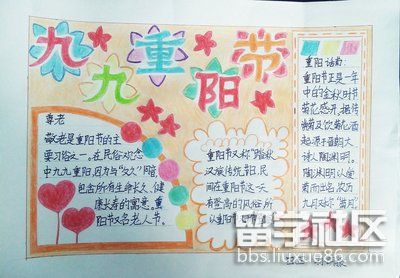 九九重阳节
尊老
敬老是重阳节的主
要习俗之一。在民俗观念
中九九重阳,因为与"久久"同音,
包含所有生命长久、健
康长寿的寓意。重
阳节又名老人节。
重阳节又称"踏秋"
汉族传统节日,民
间在重阳节这一天
有登高的风俗,所
以重阳节
重阳诗韵:
重阳节正是一年
中的金秋时节
菊花盛开,据传
赏菊及饮菊花酒
起源于晋朝大
诗人陶渊明。
陶渊明以
菊而出名,农历
九月又称"菊月"
留学社区
bbs.liuxue86.com